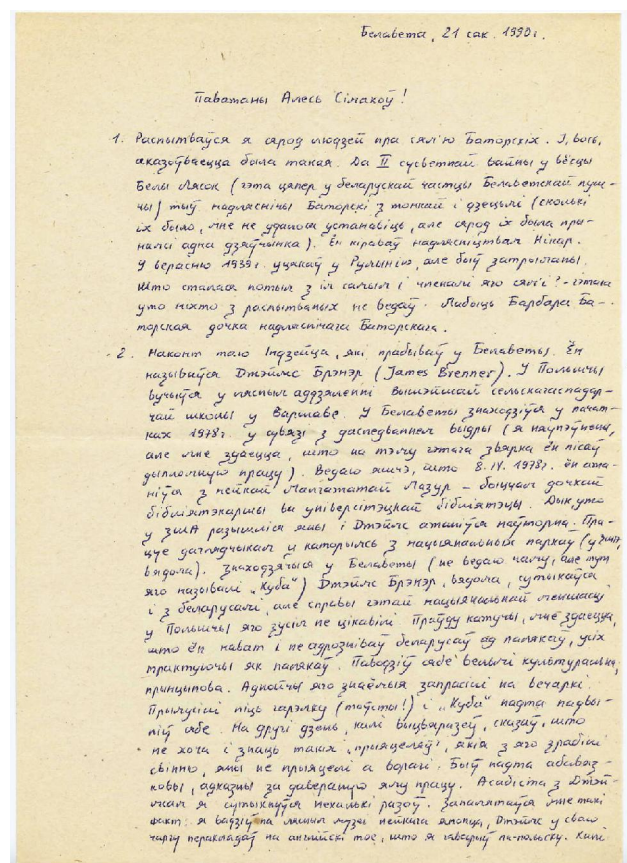 Белавежа, 21 сак. 1990 г.
Паважаны Алесь Сімакоў!
1. Распытваўся я сярод людзей пра сям'ю Баторскіх. І, вось,
аказоўваецца была такая. Да II сусветнай вайны у вёсцы
Белы Лясок (гэта цяпер у беларускай частцы Белавежскай пуш-
чы) жыў надляснічы Баторскі з жонкай і дзецьмі (сколькі
іх было, мне не удалося устанавіць, але сярод іх была пры-
намсі адна дзяўчынка). Ён кіраваў надлясніцтвам Нікар.
У верасню 1939 г. уцякаў у Румынію, але быў затрыманы.
Што сталася потым з ім самым і членамі яго сям'і? - гэтага
ужо ніхто з распытваных не ведаў. Мабыць Барбара Ба-
торская дочка надляснічага Баторскага.
2. Наконт таго Індзейца, які прабываў у Белавежы. Ён
называўся Джэймс Брэнэр (James Brenner). У Польшчы
вучыўся у лясным аддзяленні Вышэйшай сельскагаспадар-
чай школы у Варшаве. У Белавежы знаходзіўся у пачат-
ках 1978 г. у сувязі з даследваннем выдры (я няупэўнены,
але мне здаецца, што на тэму гэтага звярка ён пісаў
дыпломную працу). Ведаю яшчэ, што 8.IV.1978 г. ён ажа-
ніўся з нейкай Малгажатай Мазур - быццам дочкай
бібліятэкаршы ва універсітэцкай бібліятэцы. Дык ужо
у ЗША разышліся яны і Джэймс ажаніўся паўторна. Пра-
цуе даглядчыкам у каторымсь з нацыянальных паркаў (у ЗША,
вядома). Знаходзячыся у Белавежы (не ведаю чаму, але тут
яго называлі „Куба") Джэймс Брэнэр, вядома, сутыкаўся
і з беларусамі, але справы гэтай нацыянальнай меншасці
у Польшчы яго зусім не цікавілі. Праўду кажучы, мне здаецца,
што ён нават і не адрозніваў беларусаў ад палякаў, усіх
трактуючы як палякаў. Паводзіў сябе вельмі культуральна,
прынцыпова. Аднойчы яго знаёмыя запрасілі на вечарку.
Прымусілі піць гарэлку (тоўсты!) і „Куба" надта падвы-
піў сабе. На другі дзень, калі выцвярэзеў, сказаў, што
не хоча і знаць такіх „прыяцеляў", якія з яго зрабілі
свінню, яны не прыяцелі а ворагі. Быў надта абавяз-
ковы, адказны за давераную яму працу. Асабіста з Джэй-
мсам я сутыкнуўся некалькі разоў. Запамятаўся мне такі
факт: я вадзіў па лясным музеі нейкага японца, Джэймс у сваю
чаргу перакладаў на англійскі тое, што я гаварыў па-польску. Калі